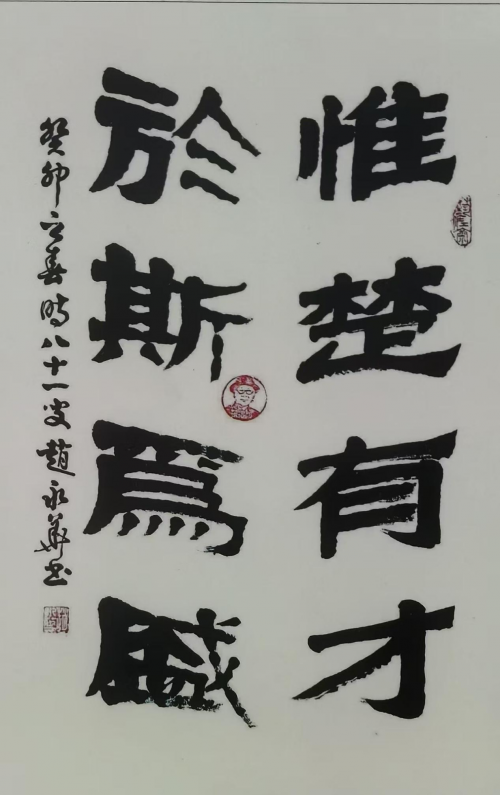 惟楚有才
於斯爲盛
癸卯立春時八十一叟趙永華书